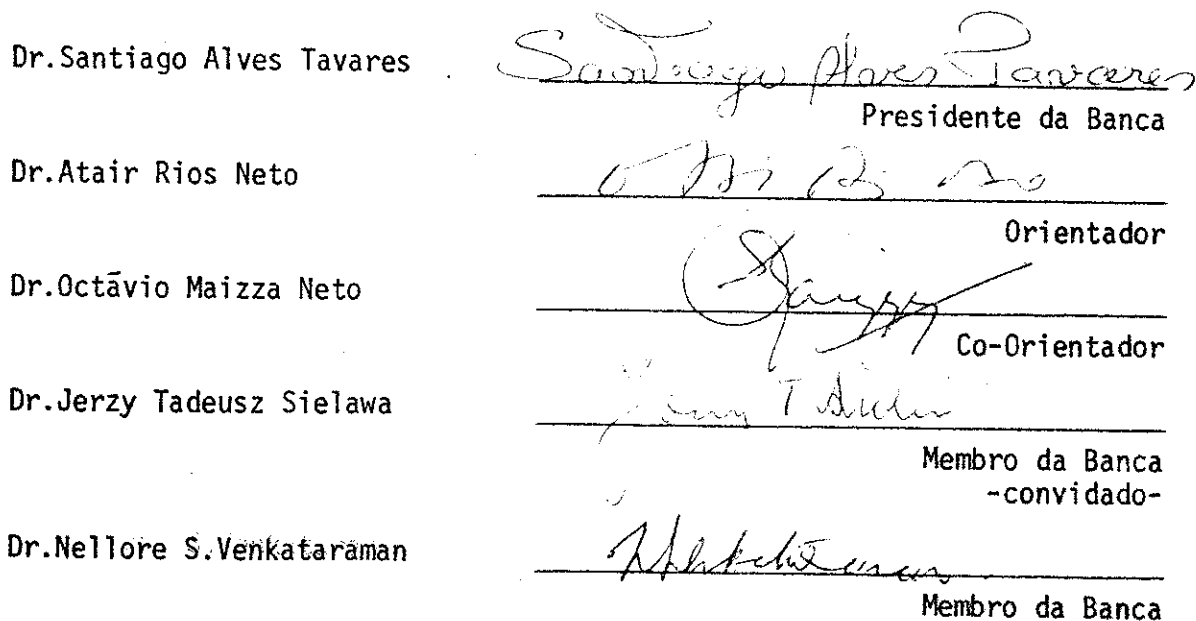 Dr.Santiago Alves Tavares Santiago Alves Tavares
Presidente da Banca
Dr.Atair Rios Neto
Orientador
Dr.Octãvio Maizza Neto
Co-Orientador
Dr.Jerzy Tadeusz Sielawa
Membro da Banca
-convidado-
Dr.Nellore S.Venkataraman
Membro da Banca